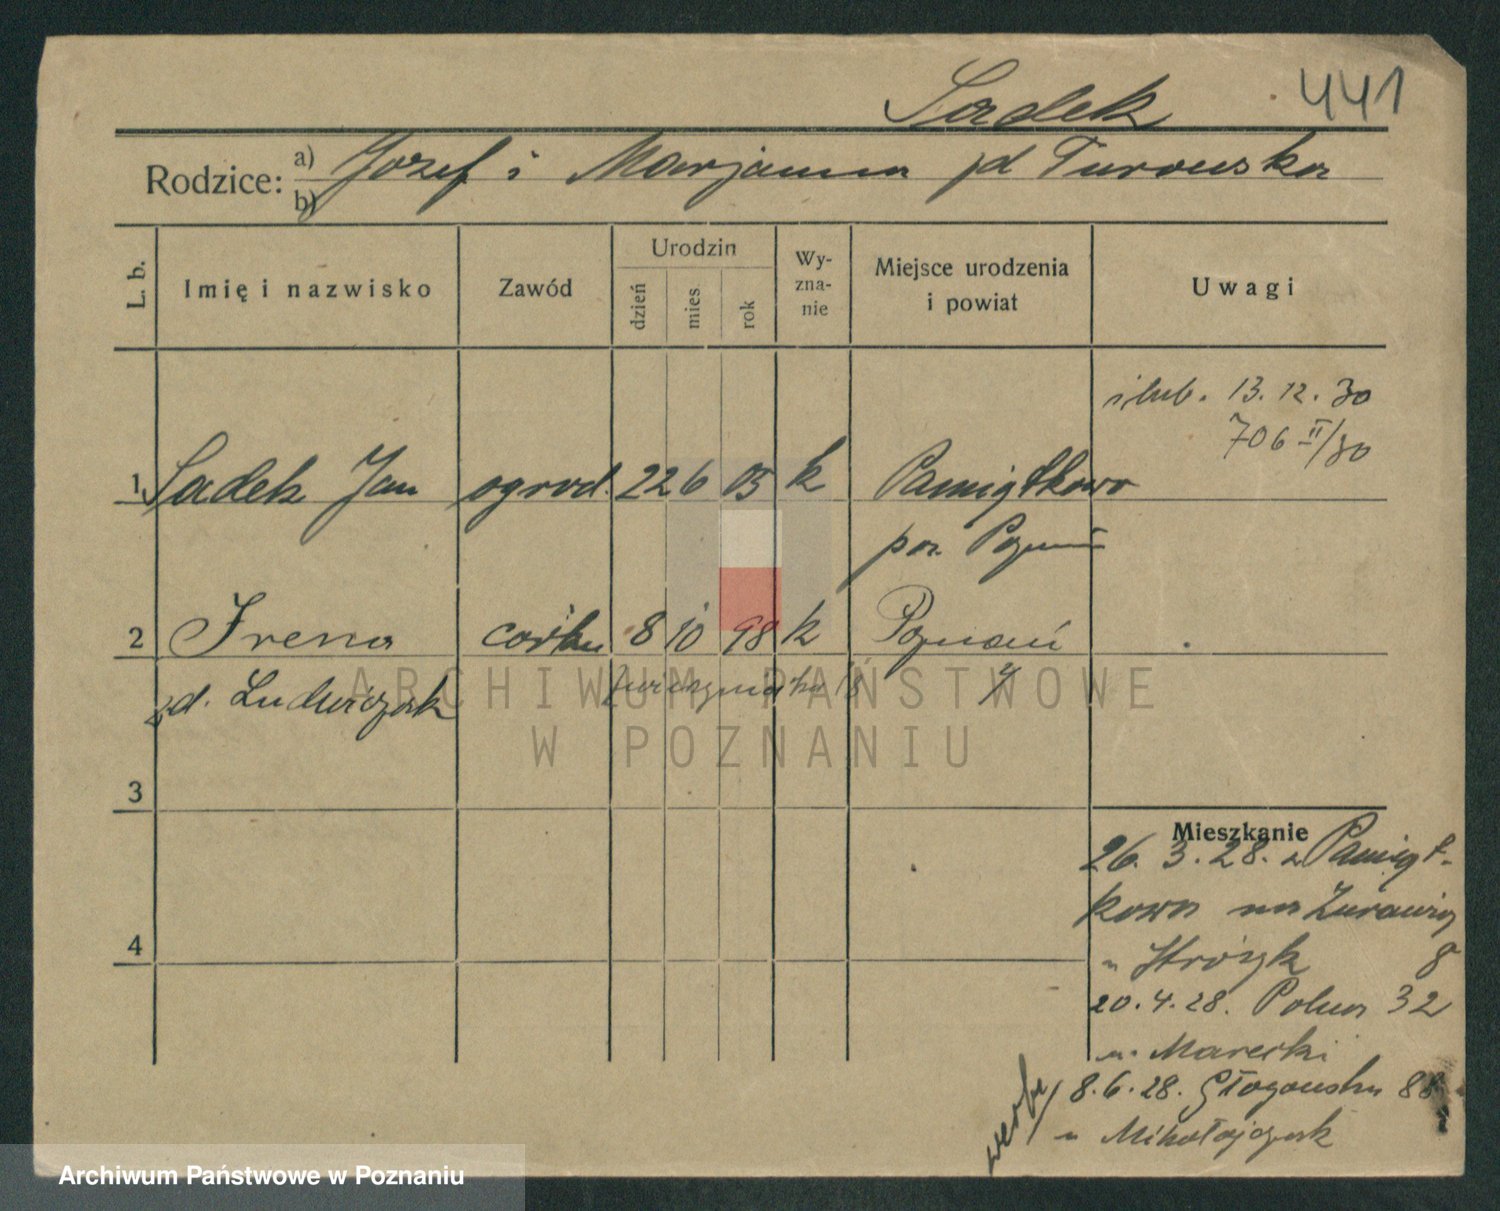 Sadek 441
Rodzice: a) Jozef i Marjanna zd Turowska
b)
L. b. Imię i nazwisko Zawód Urodzin dzień mies rok Wy-zna-nie Miejsce urodzenia i powiat Uwagi
ślub. 13. 12. 30
706 II/30
1 Sadek Jan ogrod. 22 6 05 k Pamiątkowo
pow. Poznań
2 Irena córka 8 10 98 k Poznań
zd. Ludwiczak
ARCHIWUM PAŃSTWOWE
W POZNANIU
3
Mieszkanie
26. 3. 28. z Pamiąt-
kowa na Żurawia
4
u 8
20. 4. 28. Polna 32
u. Marecki
8. 6. 28. Głogowska 88
u Mikołajczak
Archiwum Państwowe w Poznaniu